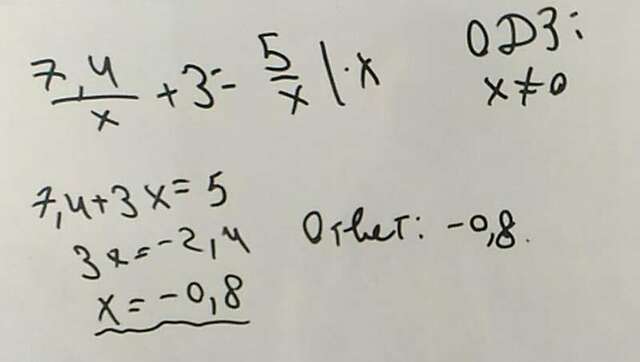 7,4/x + 3 = 5/x | · x
ОДЗ:
x ≠ 0
7,4 + 3x = 5
3x = -2,4
x = -0,8
Ответ: -0,8.